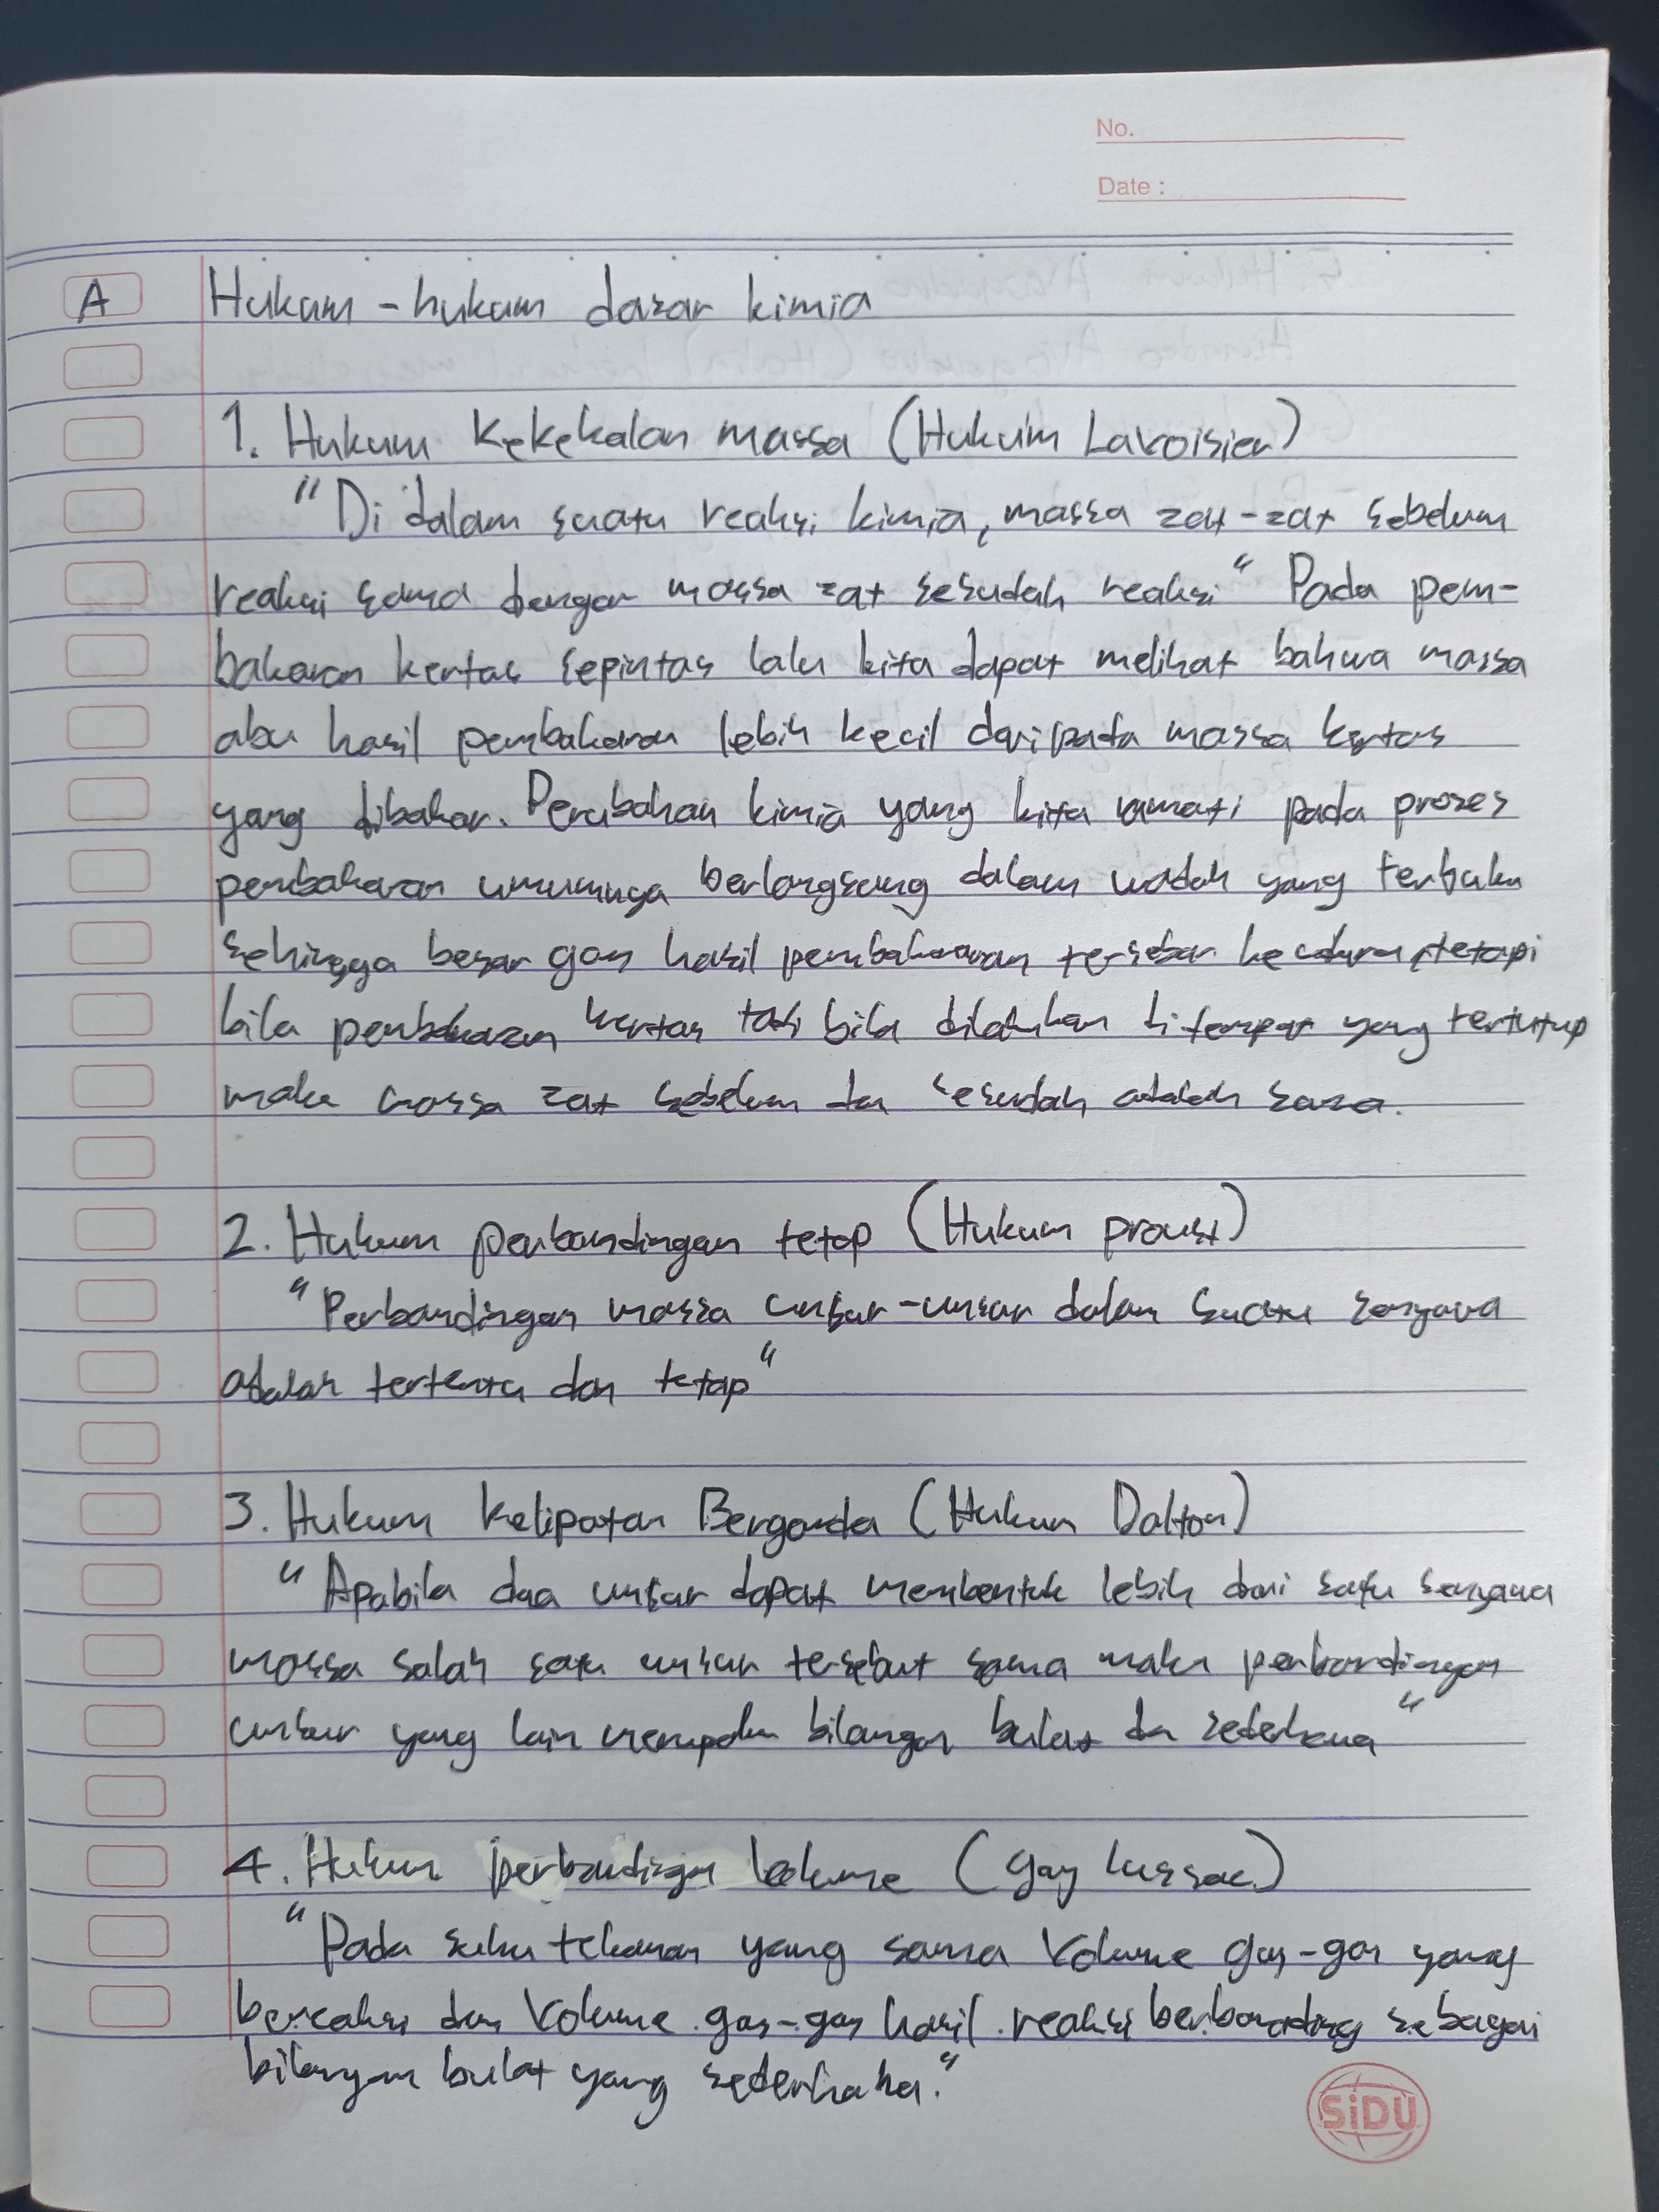 No.
Date :
A Hukum - hukum dasar kimia
1. Hukum Kekekalan massa (Hukum Lavoisier)
"Di dalam suatu reaksi kimia, massa zat-zat sebelum
reaksi sama dengan massa zat sesudah reaksi" Pada pem-
bakaran kertas sepintas lalu kita dapat melihat bahwa massa
abu hasil pembakaran lebih kecil daripada massa kertas
yang dibakar. Perubahan kimia yang kita amati pada proses
pembakaran umumnya berlangsung dalam wadah yang terbuka
sehingga besar gas hasil pembakaran tersebar tetapi
bila pembakaran kertas tadi bila dilakukan di tempat yang tertutup
maka massa zat sebelum dan sesudah adalah sama.
2. Hukum perbandingan tetap (Hukum proust)
"Perbandingan massa unsur-unsur dalam suatu senyawa
adalah tertentu dan tetap"
3. Hukum Kelipatan Berganda (Hukum Dalton)
"Apabila dua unsur dapat membentuk lebih dari satu senyawa
massa salah satu unsur tersebut sama maka perbandingan
unsur yang lain merupakan bilangan bulat dan sederhana"
4. Hukum perbandingan (Gay Lussac)
"Pada suhu tekanan yang sama Volume gas-gas yang
bereaksi dan Volume gas-gas hasil reaksi berbanding sebagai
bilangan bulat yang sederhana."
SiDU